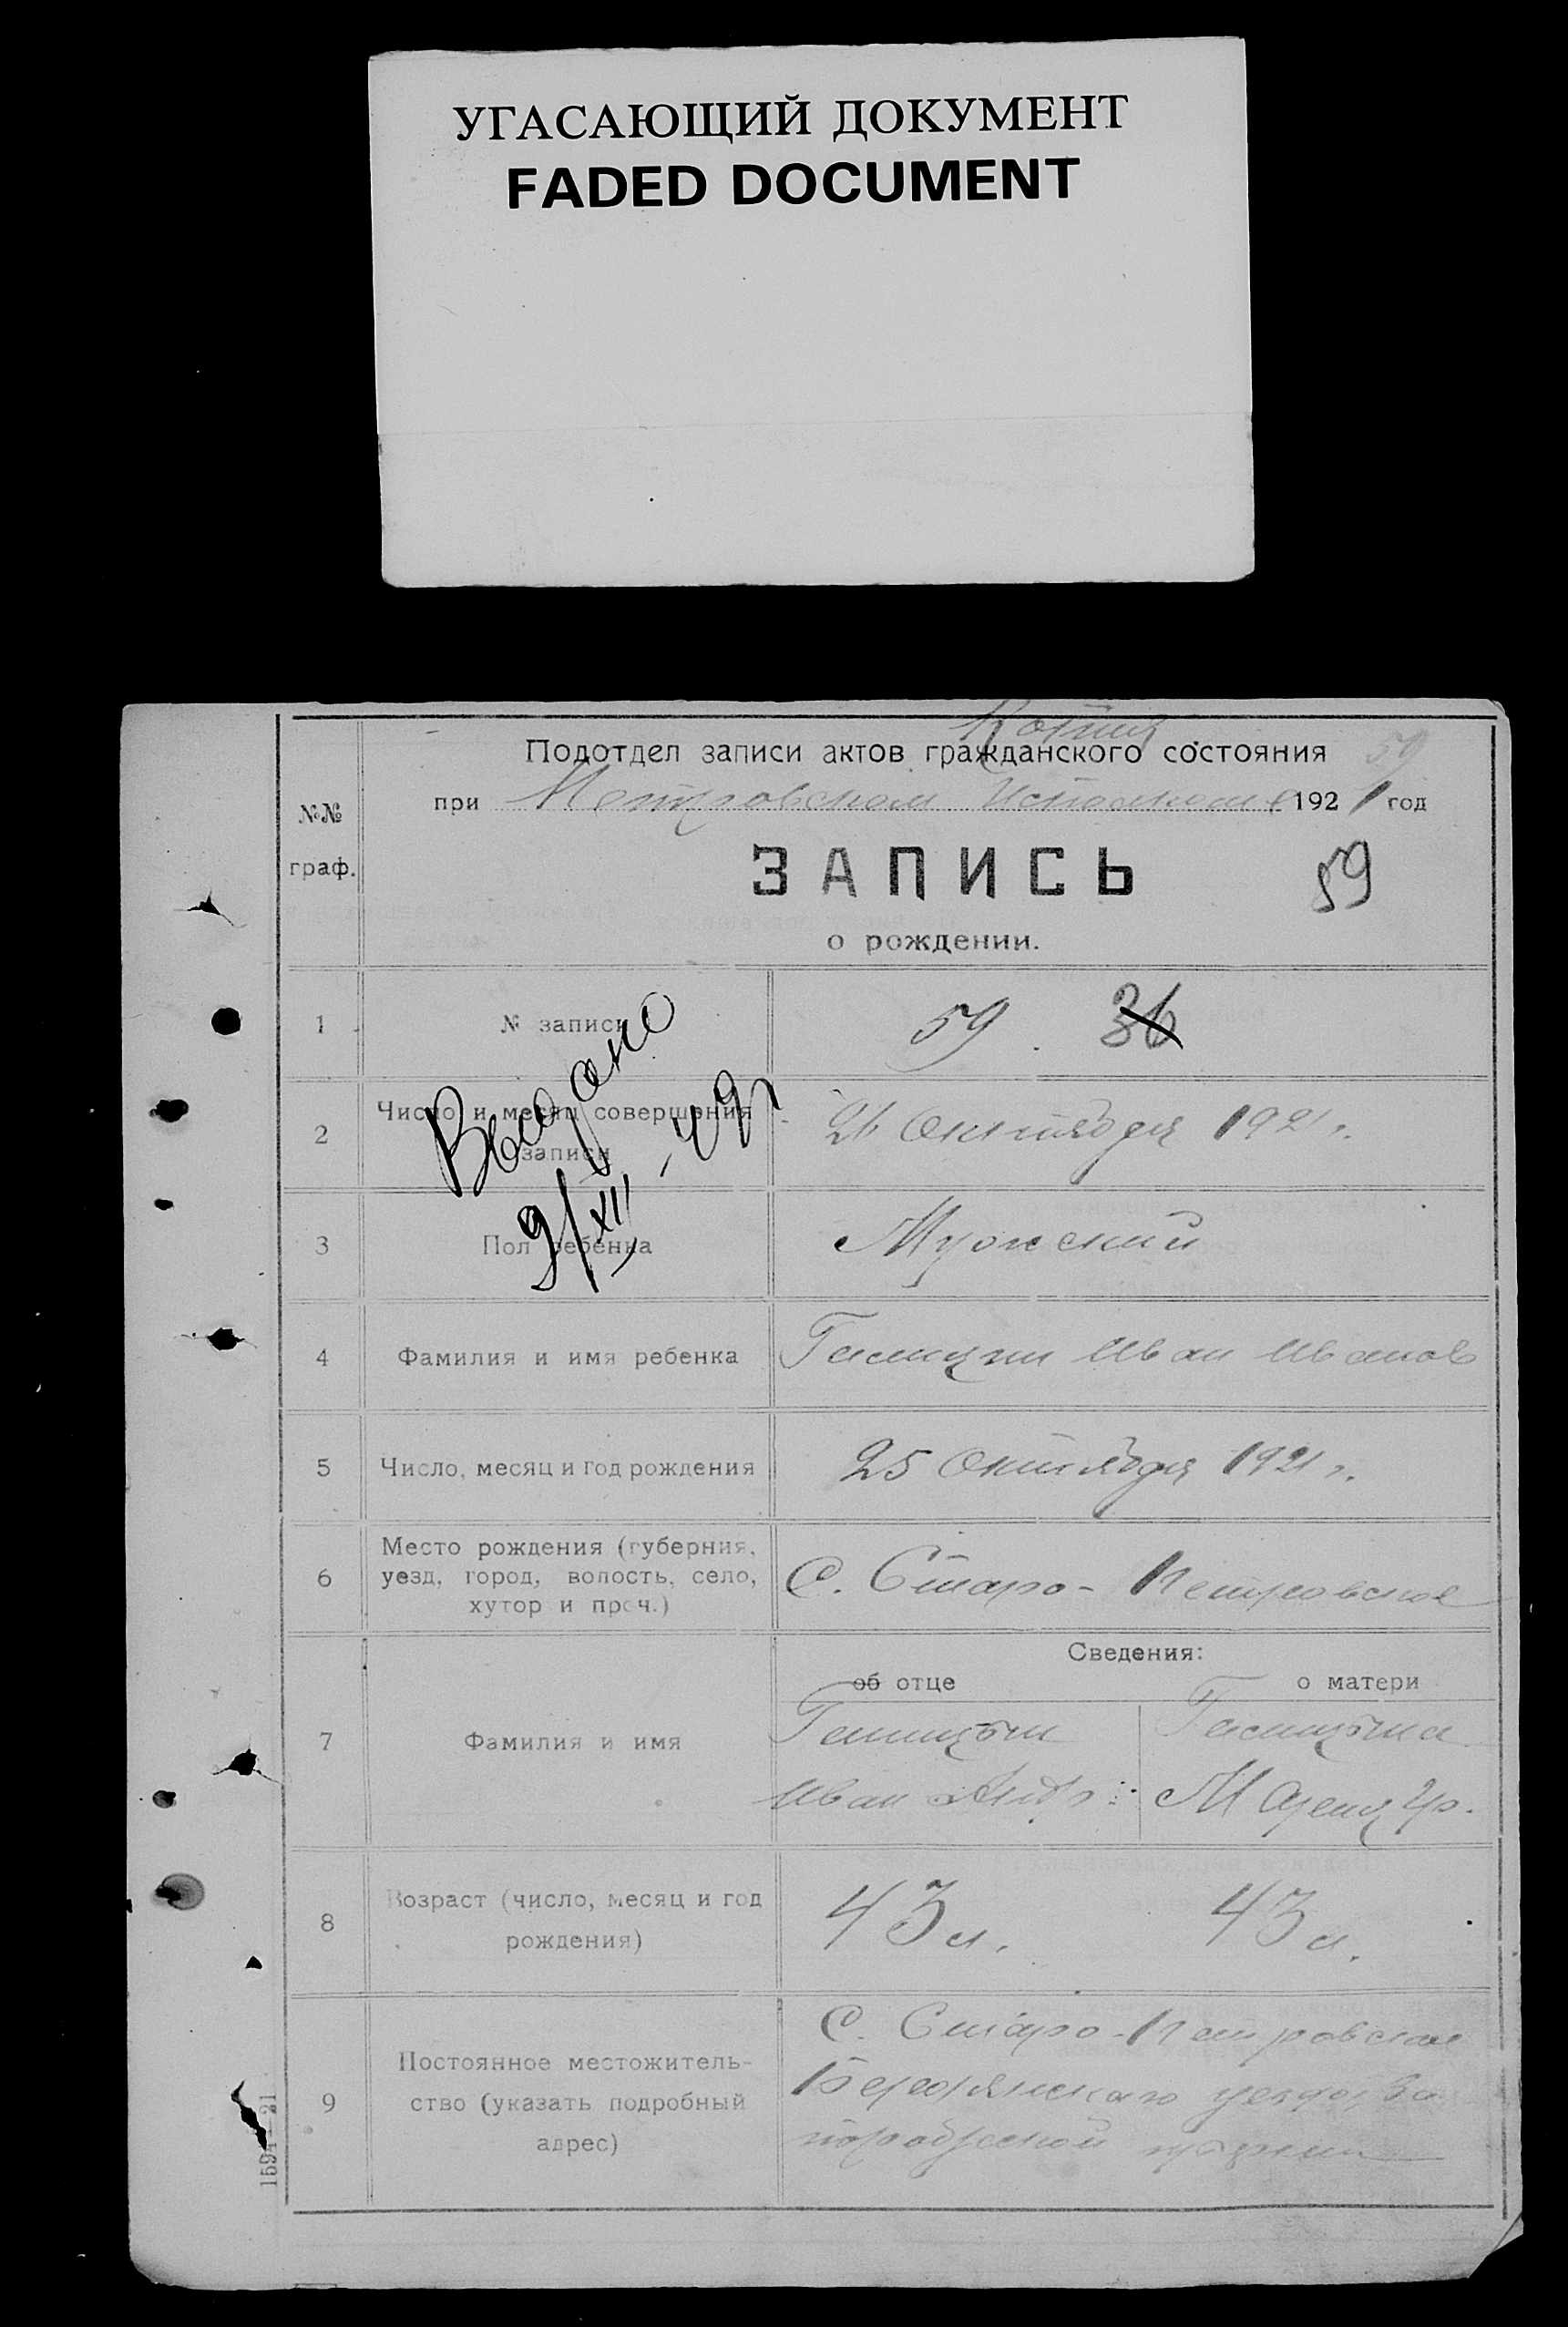 УГАСАЮЩИЙ ДОКУМЕНТ
FADED DOCUMENT
Копия
Подотдел записи актов гражданского состояния
59
при Петровском Исполкоме 1921 год
№№
граф.
ЗАПИСЬ
59
о рождении.
1
№ записи
59. 36
Выдано
9/XII-49г
2
Число и месяц совершения
записи
26 Октября 1921 г.
3
Пол ребенка
Мужский
4
Фамилия и имя ребенка
Иван Иванов
5
Число, месяц и год рождения
25 Октября 1921 г.
6
Место рождения (губерния,
уезд, город, волость, село,
хутор и проч.)
С. Старо-Петровское
Сведения:
об отце
о матери
7
Фамилия и имя
Иван Андр.
Мария Гр.
8
Возраст (число, месяц и год
рождения)
43 л.
43 л.
9
Постоянное местожитель-
ство (указать подробный
адрес)
С. Старо-Петровское
Бердянского уезда
губернии
1594—21